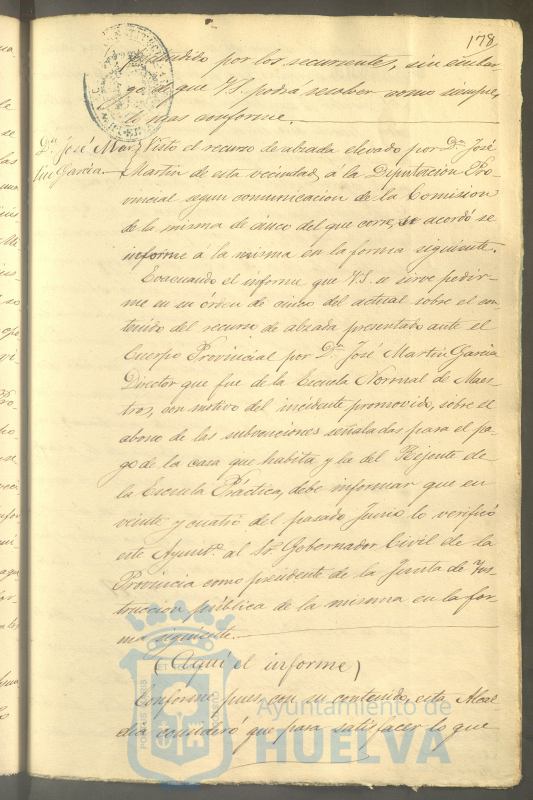 178
pretendido por los recurrentes, sin embar-
go de que V.S. podrá resolver como siempre,
lo mas conforme.
Dn. José Mar-
tin Garcia
Visto el recurso de alzada elevado por Dn. José
Martin de esta vecindad, á la Diputacion Pro-
vincial segun comunicacion de la Comision
de la misma de cinco del que corre, se acordó se
informe á la misma en la forma siguiente.
Evacuando el informe que V.S. se sirve pedir-
me en su órden de cinco del actual sobre el con-
tenido del recurso de alzada presentado ante el
Cuerpo Provincial por Dn. José Martin Garcia
Director que fué de la Escuela Normal de Maes-
tros, con motivo del incidente promovido, sobre el
abono de las subvenciones señaladas para el pa-
go de la casa que habita y la del Rejente de
la Escuela Práctica, debe informar que en
veinte y cuatro del pasado Junio lo verificó
este Ayunto. al Sr. Gobernador Civil de la
Provincia como presidente de la Junta de Ins-
truccion pública de la misma en la for-
ma siguiente.
(Aquí el informe)
Conforme pues, con su contenido, esta Alcal
dia consideró que para satisfacer lo que
Ayuntamiento de
HUELVA